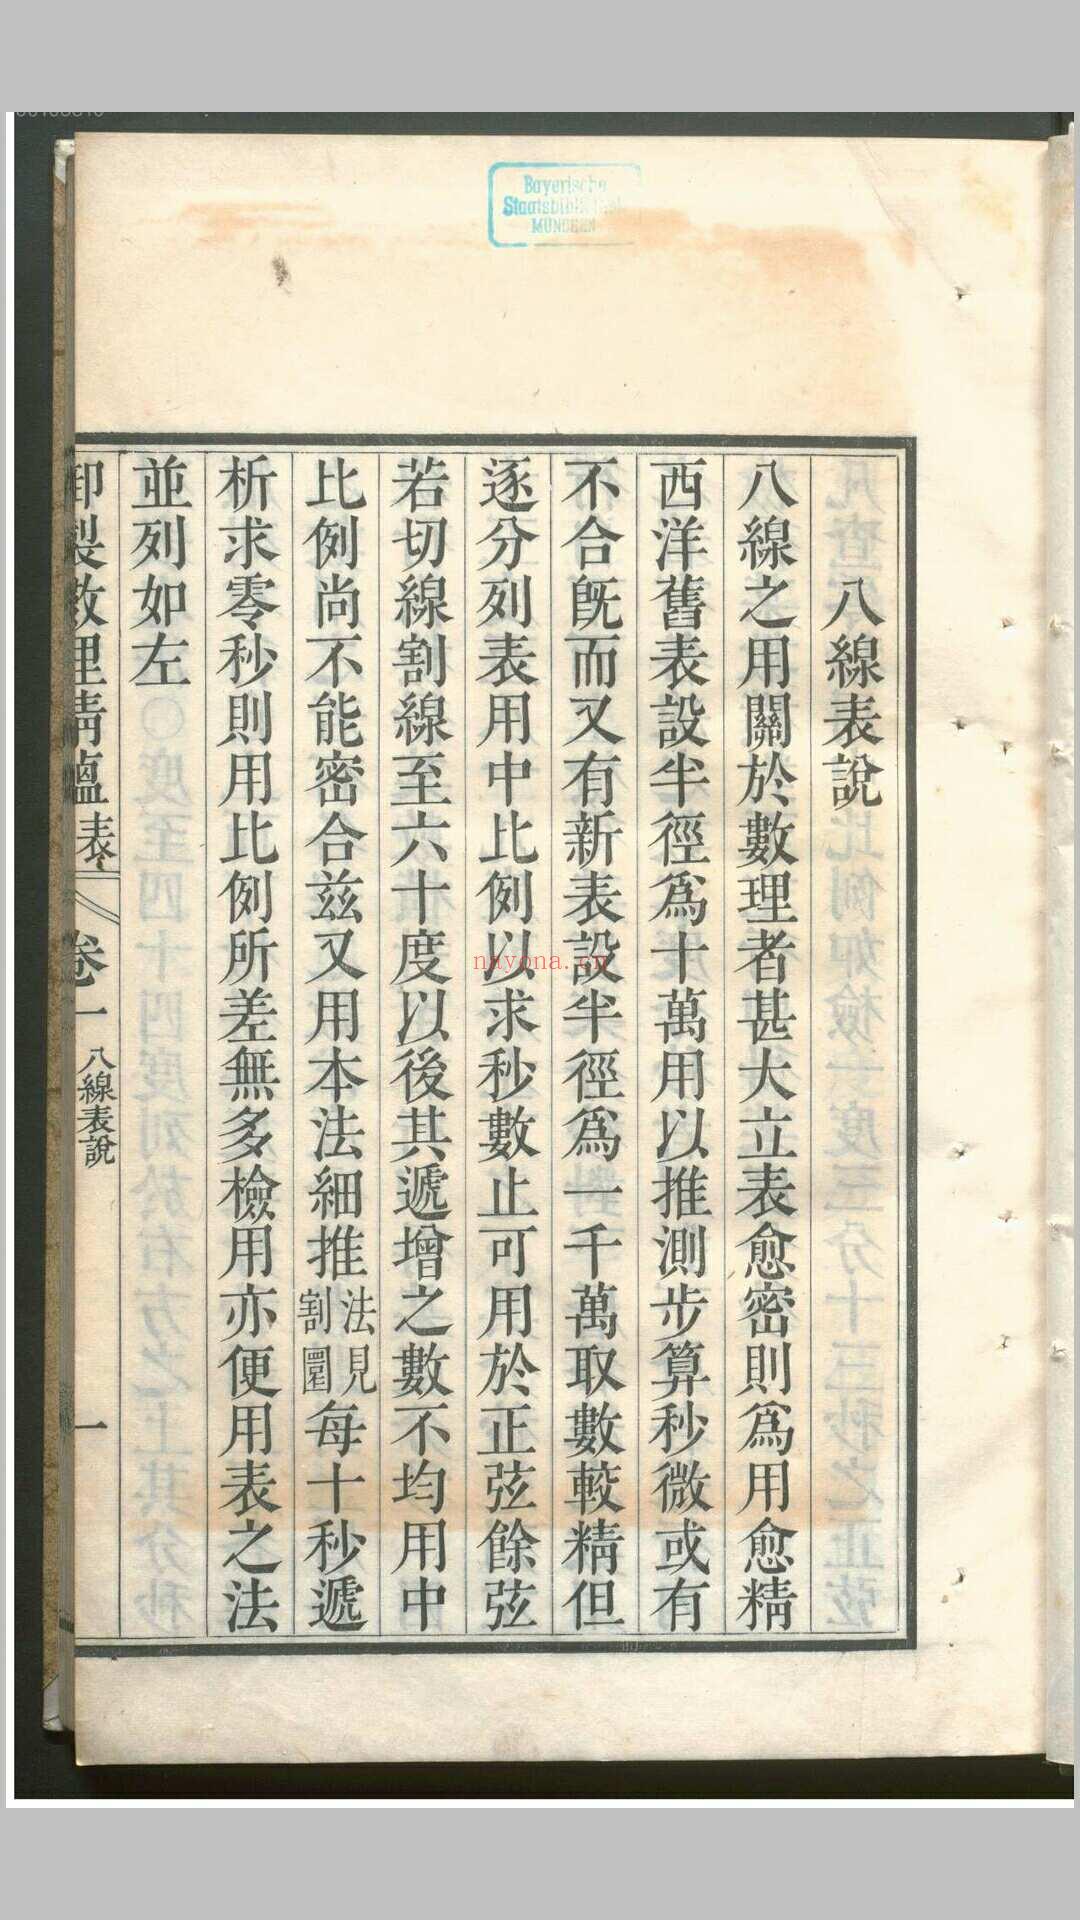 Bayerische
Staatsbibliothek
MÜNCHEN
八線表說
八線之用關於數理者甚大立表愈密則爲用愈精
西洋舊表設半徑爲十萬用以推測步算秒微或有
不合旣而又有新表設半徑爲一千萬取數較精但
逐分列表用中比例以求秒數止可用於正弦餘弦
若切線割線至六十度以後其遞增之數不均用中
比例尚不能密合兹又用本法細推法見割圜每十秒遞
析求零秒則用比例所差無多檢用亦便用表之法
並列如左
御製數理精蘊表
卷一
八線表說
一
nayona.cn